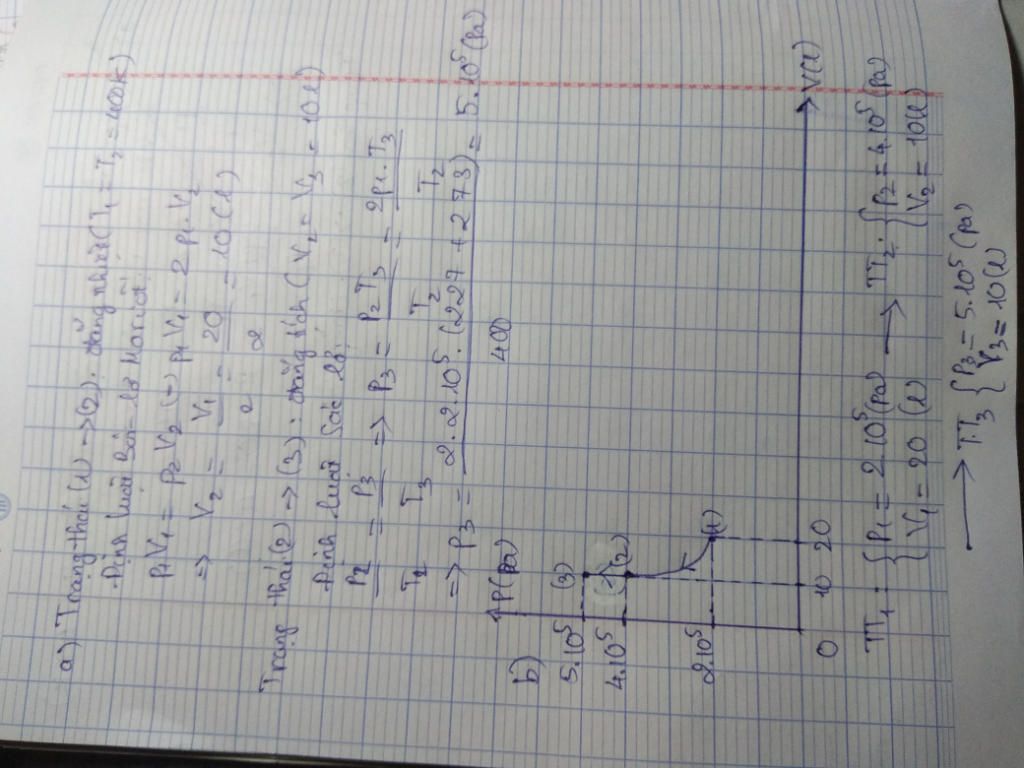 a) Trạng thái (1) -> (2): đẳng nhiệt (T₁ = T₂ = 400K)
Định luật Bôi-lơ Mariốt:
P₁V₁ = P₂V₂ (=) P₁V₁ = 2P₁.V₂
=> V₂ = V₁/2 = 20/2 = 10(l)
Trạng thái (2) -> (3): đẳng tích (V₂ = V₃ = 10l)
Định luật Sác lơ:
P₂/T₂ = P₃/T₃ => P₃ = P₂T₃/T₂ = 2P₁.T₃/T₂
=> P₃ = 2.2.10⁵.(227+273)/400 = 5.10⁵ (Pa)
b)
P(Pa)
5.10⁵ (3)
4.10⁵ (2)
2.10⁵ (1)
0 10 20 V(l)
TT₁: { P₁ = 2.10⁵ (Pa) -> TT₂: { P₂ = 4.10⁵ (Pa)
V₁ = 20 (l) V₂ = 10(l)
-> TT₃ { P₃ = 5.10⁵ (Pa)
V₃ = 10(l)